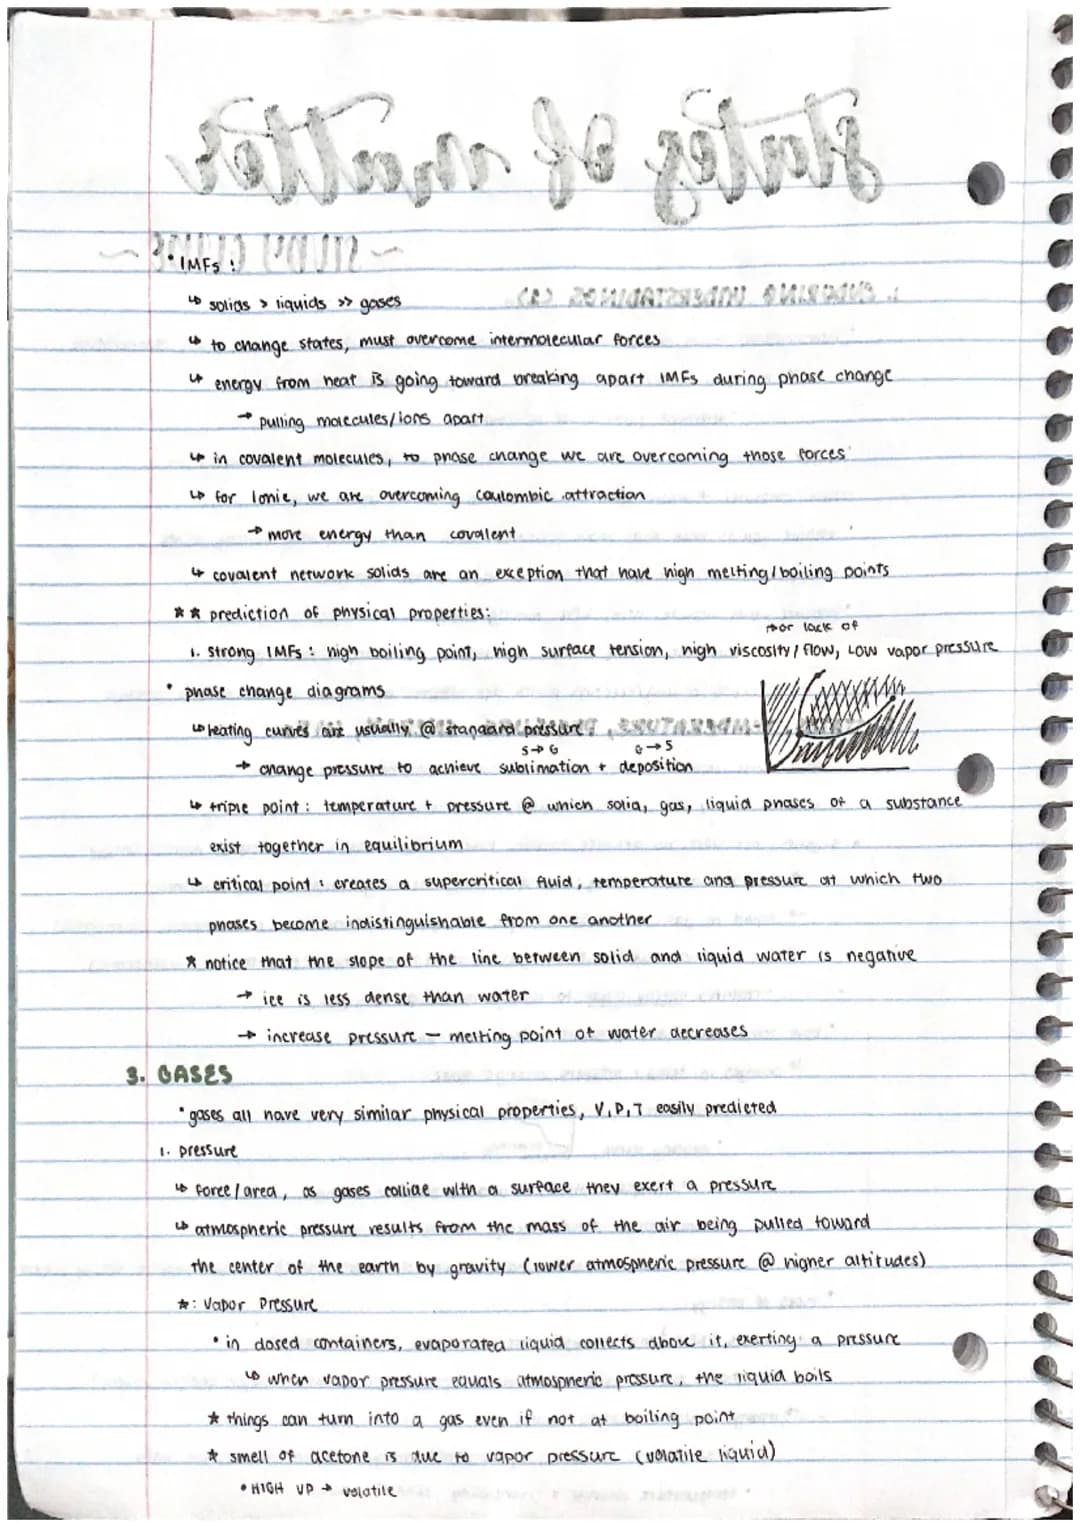 States of matter
~ STUDY GUIDE ~
1. ENDURING UNDERSTANDINGS
• IMFs :
↳ solids > liquids >> gases
↳ to change states, must overcome intermolecular forces
↳ energy from heat is going toward breaking apart IMFs during phase change
→ pulling molecules/ions apart
↳ in covalent molecules, to phase change we are overcoming those forces
↳ for Ionic, we are overcoming coulombic attraction
→ more energy than covalent
↳ covalent network solids are an exception that have high melting/boiling points
** prediction of physical properties:
→ or lack of
1. strong IMFs : high boiling point, high surface tension, high viscosity/flow, LOW vapor pressure
• phase change diagrams
↳ heating curves are usually @ standard pressure
S→G G→S
→ change pressure to achieve sublimation + deposition
↳ triple point : temperature + pressure @ which solid, gas, liquid phases of a substance
exist together in equilibrium
↳ critical point : creates a supercritical fluid, temperature and pressure at which two
phases become indistinguishable from one another
* notice that the slope of the line between solid and liquid water is negative
→ ice is less dense than water
→ increase pressure — melting point of water decreases
3. GASES
• gases all have very similar physical properties, V,P,T easily predicted
1. pressure
↳ force/area, as gases collide with a surface they exert a pressure
↳ atmospheric pressure results from the mass of the air being pulled toward
the center of the earth by gravity (lower atmospheric pressure @ higher altitudes)
*: Vapor Pressure
• in closed containers, evaporated liquid collects above it, exerting a pressure
↳ when vapor pressure equals atmospheric pressure, the liquid boils
* things can turn into a gas even if not at boiling point
* smell of acetone is due to vapor pressure (volatile liquid)
• HIGH VP → volatile